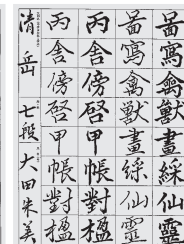 啚寫禽獸畫綵仙靈
啚寫禽獸畫綵仙靈
丙舍傍啓甲帳對楹
丙舍傍啓甲帳對楹
清岳 七段 大田朱美